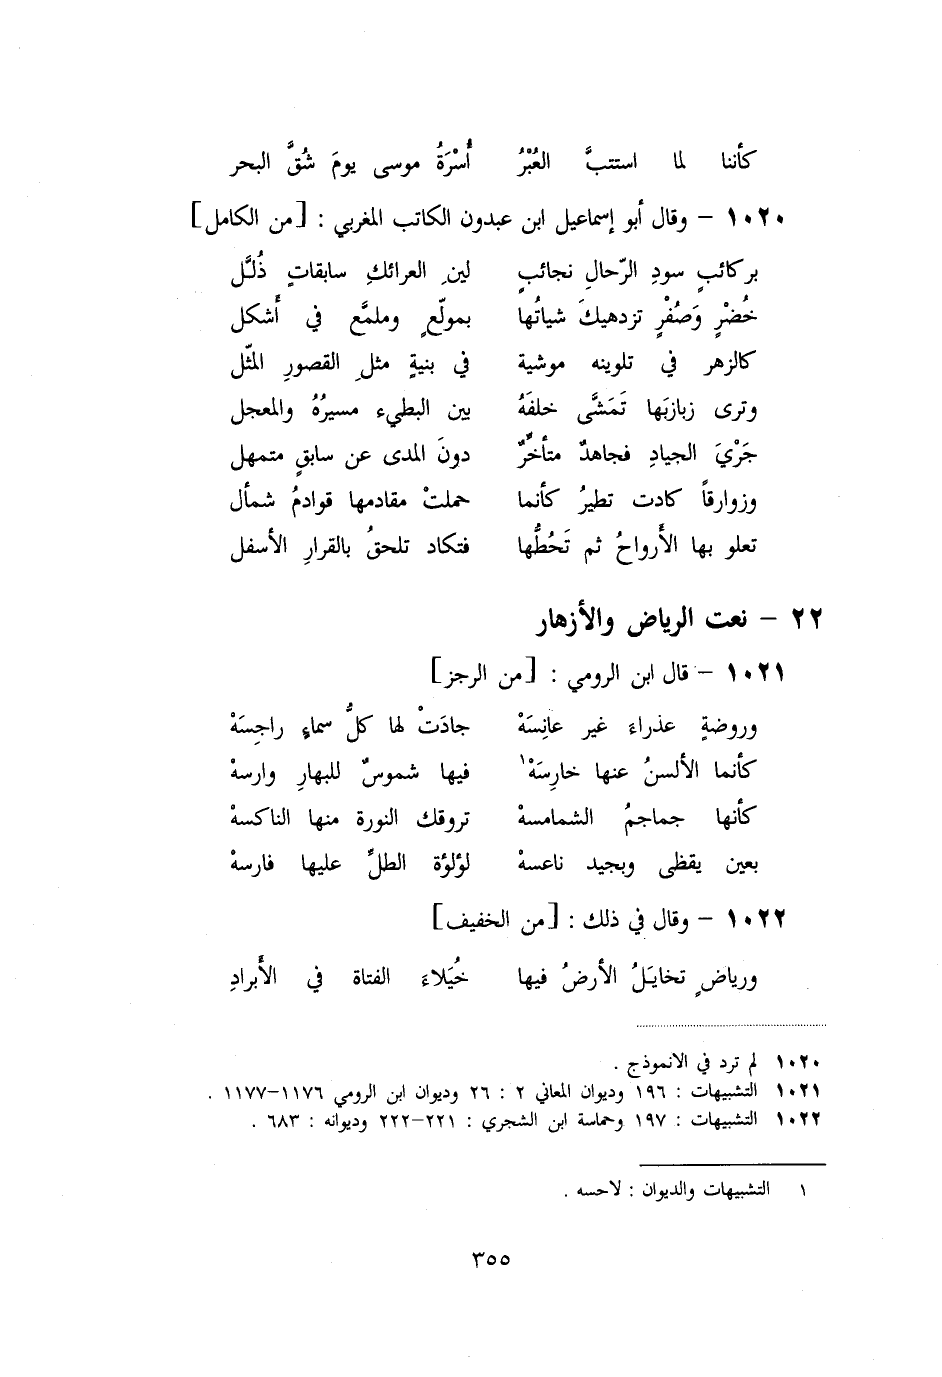 كأننا لما استتبَّ العُبْرُ أُسْرَةُ موسى يومَ شُقَّ البحر
١٠٢٠ – وقال أبو إسماعيل ابن عبدون الكاتب المغربي : [من الكامل]
بركائبٍ سودِ الرّحالِ نجائبٍ لينِ العرائكِ سابقاتٍ ذُلَّل
خُضْرٍ وَصُفْرٍ تزدهيكَ شياتُها بمولّعٍ وملمَّع في أَشكل
كالزهر في تلوينه موشية في بنيةٍ مثلِ القصورِ المثّل
وترى زبازبَها تَمَشَّى خلفَهُ بين البطيء مسيرُهُ والمعجل
جَرْيَ الجيادِ فجاهدٌ متأخرٌّ دونَ المدى عن سابقٍ متمهل
وزوارقاً كادت تطيرُ كأنما حملتْ مقادمها قوادمُ شمأل
تعلو بها الأَرواحُ ثم تَحُطُّها فتكاد تلحقُ بالقرارِ الأسفل
٢٢ – نعت الرياض والأزهار
١٠٢١ – قال ابن الرومي : [من الرجز]
وروضةٍ عذراءَ غير عانِسَهْ جادَتْ لها كلُّ سماءٍ راجِسَهْ
كأنما الألسنُ عنها خارِسَهْ١ فيها شموسٌ للبهارِ وارسهْ
كأنها جماجمُ الشمامسهْ تروقك النورة منها الناكسهْ
بعين يقظى وبجيد ناعسهْ لؤلؤة الطلِّ عليها فارسهْ
١٠٢٢ – وقال في ذلك : [من الخفيف]
ورياضٍ تخايَلُ الأرضُ فيها خُيَلاءَ الفتاة في الأَبرادِ
١٠٢٠ لم ترد في الانموذج .
١٠٢١ التشبيهات : ١٩٦ وديوان المعاني ٢ : ٢٦ وديوان ابن الرومي ١١٧٦–١١٧٧ .
١٠٢٢ التشبيهات : ١٩٧ وحماسة ابن الشجري : ٢٢١–٢٢٢ وديوانه : ٦٨٣ .
١ التشبيهات والديوان : لاحسه .
٣٥٥